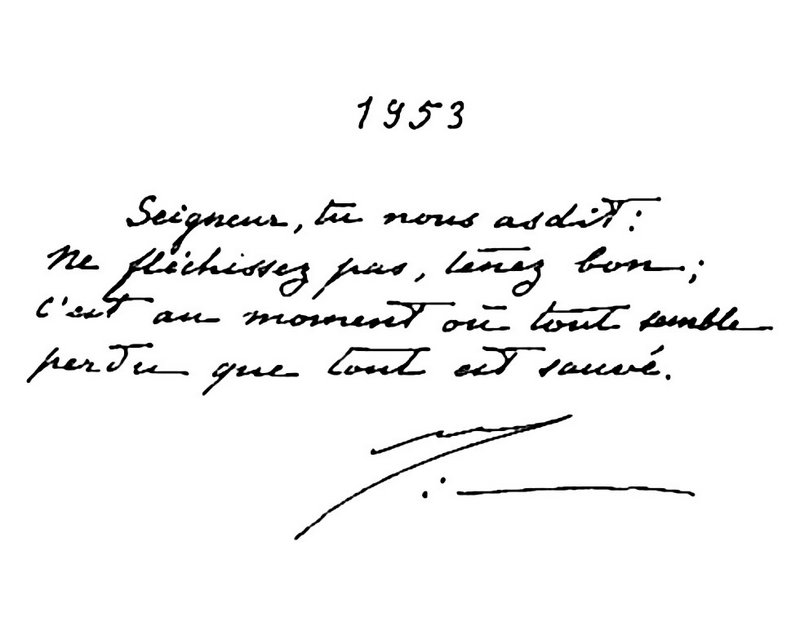 1953
Seigneur, tu nous as dit :
Ne fléchissez pas, tenez bon ;
c'est au moment où tout semble
perdu que tout est sauvé.